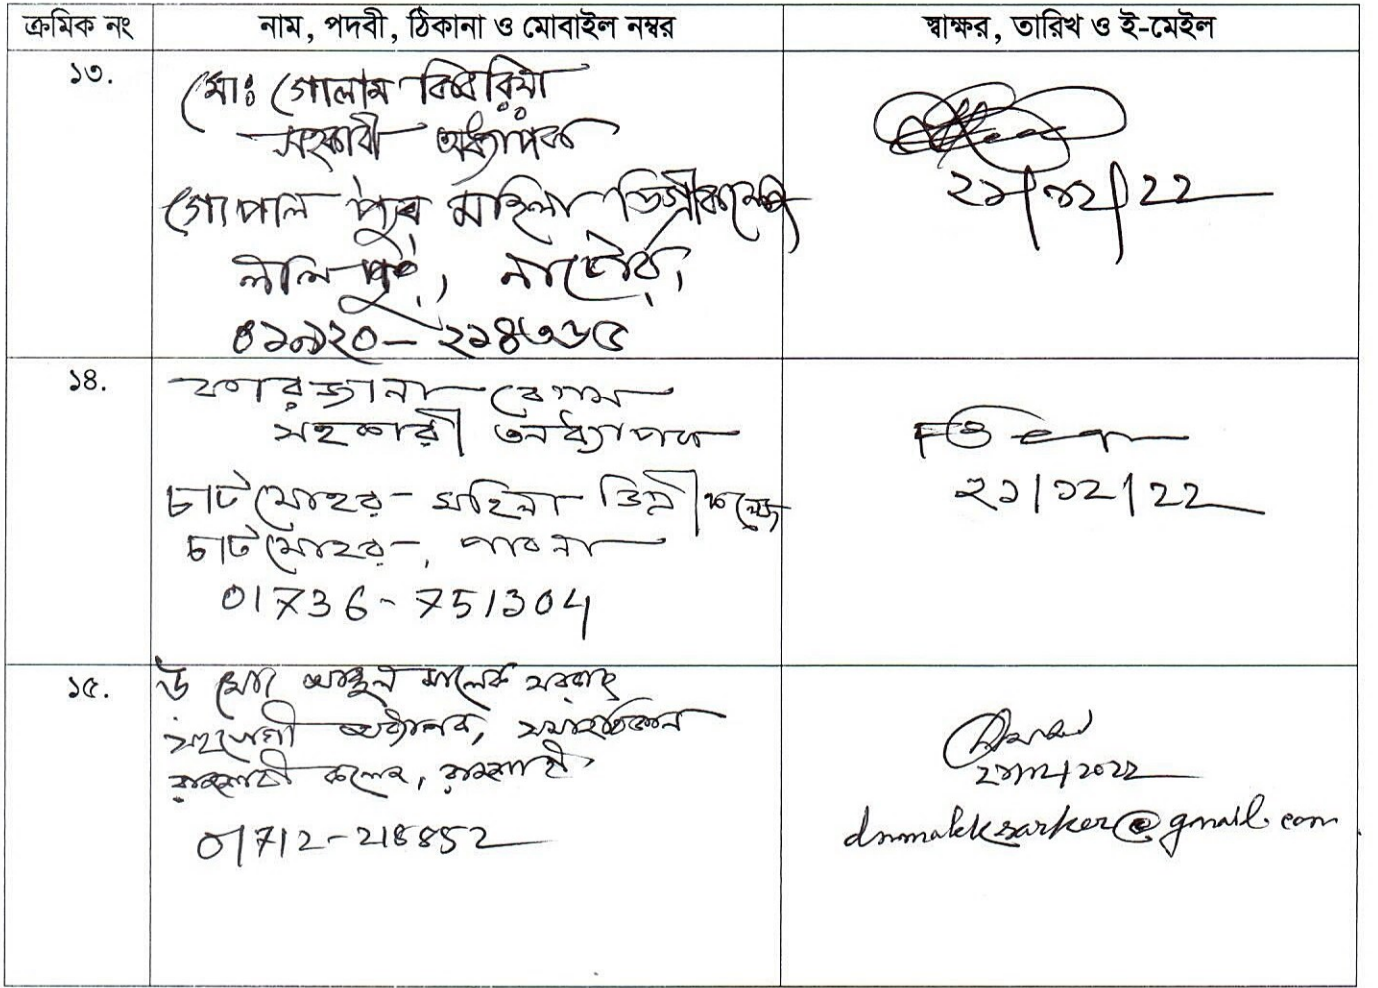 ক্রমিক নং নাম, পদবী, ঠিকানা ও মোবাইল নম্বর স্বাক্ষর, তারিখ ও ই-মেইল
১৩.
মোঃ গোলাম কিবরিয়া
সহকারী অধ্যাপক
গোপালপুর মহিলা ডিগ্রী কলেজ
লালপুর, নাটোর,
০১৯২০-২১৪৩৬৫
২১/১২/22
১৪.
ফারজানা বেগম
সহকারী অধ্যাপক
চাটমোহর মহিলা ডিগ্রী কলেজ
চাটমোহর, পাবনা
01736-751304
২১/১২/22
১৫.
ড মোঃ আব্দুল মালেক সরকার
সহযোগী অধ্যাপক, সমাজবিজ্ঞান
রাজশাহী কলেজ, রাজশাহী
01712-218852
২১/১২/2022
dmmakksarker@gmail.com